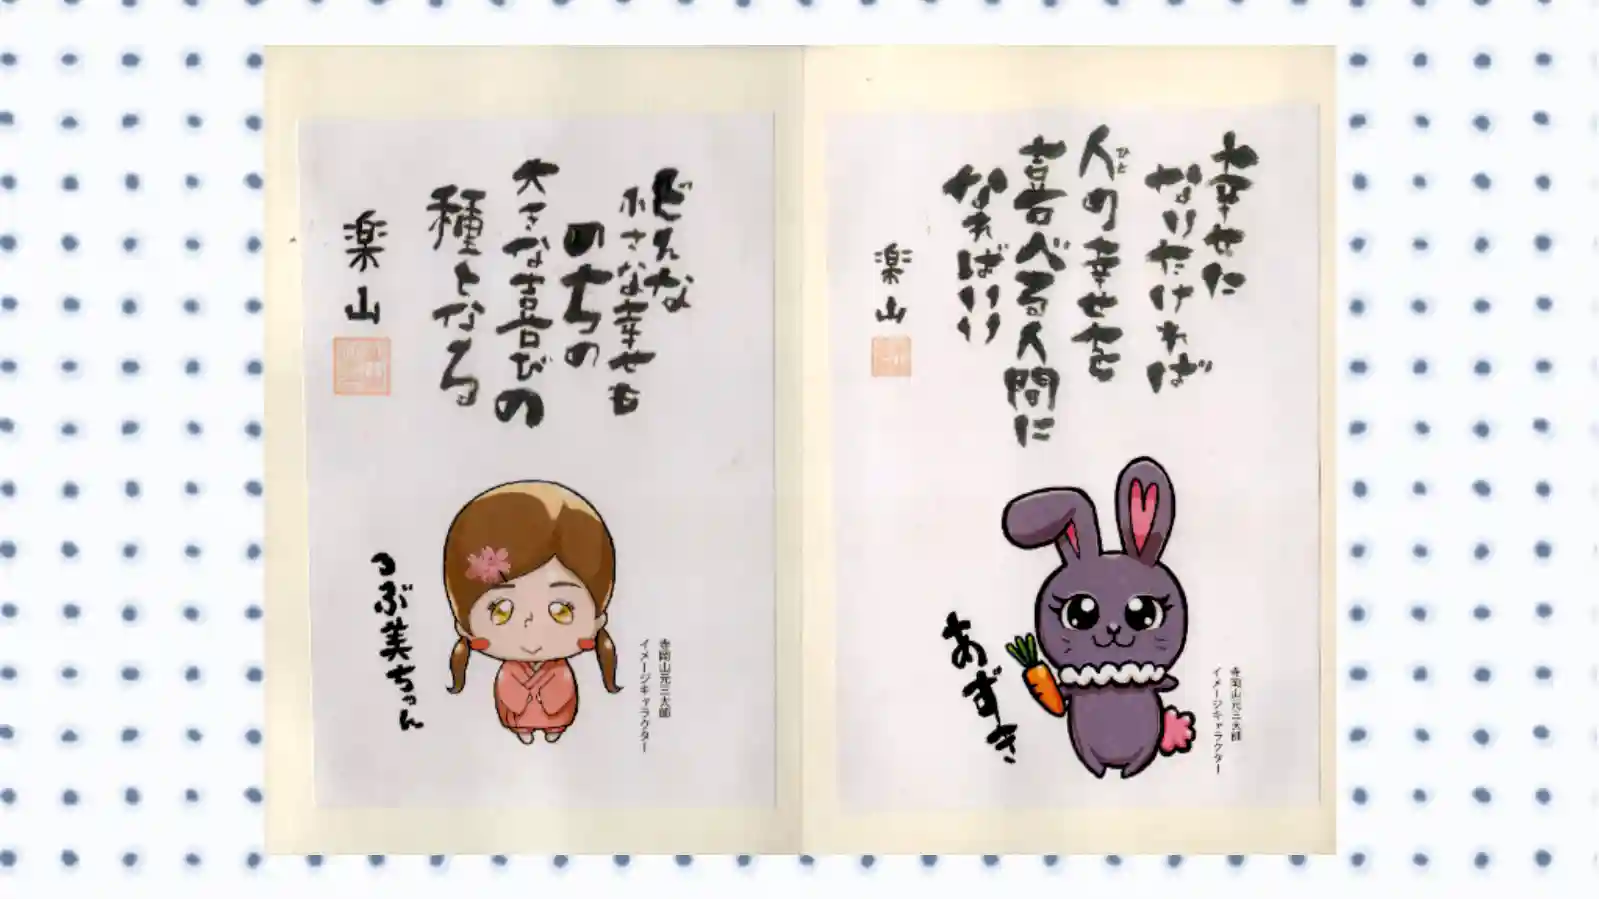 幸せに
なりたければ
ひと
人の幸せを
喜べる人間に
なればいい
楽山
寺岡山元三大師
イメージキャラクター
あずき
どんな
小さな幸せも
のちの
大きな喜びの
種となる
楽山
寺岡山元三大師
イメージキャラクター
るぶ美ちゃん